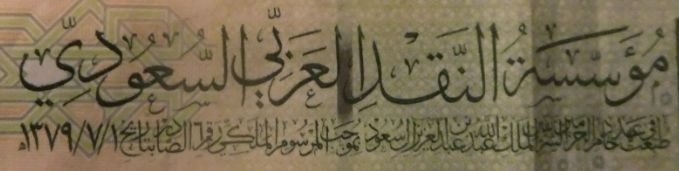 مُؤَسَّسَةُ النَّقْدِ العَرَبِيِّ السُّعُودِيِّ
طبعت في عهد خادم الحرمين الشريفين الملك عبدالله بن عبدالعزيز آل سعود بموجب المرسوم الملكي رقم ٦ الصادر بتاريخ ١٣٧٩/٧/١هـ